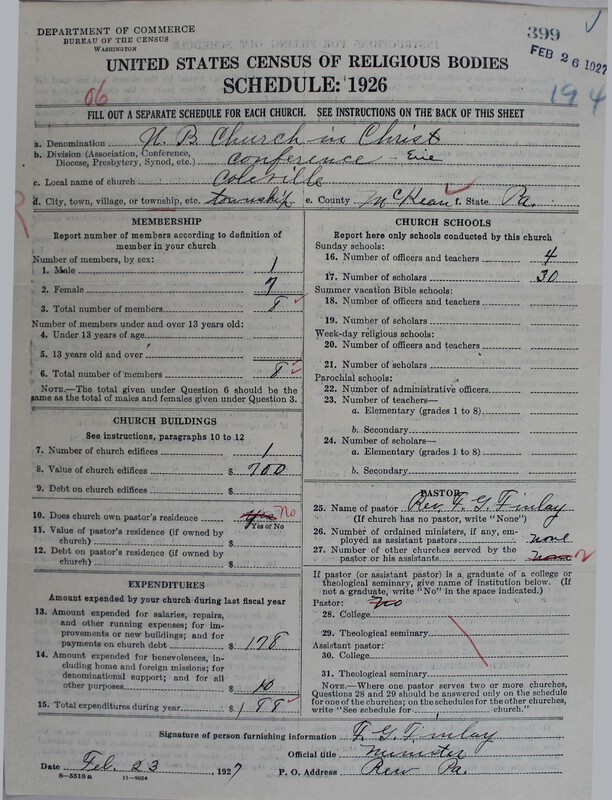 DEPARTMENT OF COMMERCE
BUREAU OF THE CENSUS
WASHINGTON
399
FEB 26 1927
UNITED STATES CENSUS OF RELIGIOUS BODIES
SCHEDULE: 1926
06
194
FILL OUT A SEPARATE SCHEDULE FOR EACH CHURCH. SEE INSTRUCTIONS ON THE BACK OF THIS SHEET
a. Denomination U. B. Church in Christ
b. Division (Association, Conference, Diocese, Presbytery, Synod, etc.) Conference - Erie
c. Local name of church Coleville
d. City, town, village, or township, etc. township e. County McKean f. State Pa.
MEMBERSHIP
Report number of members according to definition of member in your church
Number of members, by sex:
1. Male 1
2. Female 7
3. Total number of members 8
Number of members under and over 13 years old:
4. Under 13 years of age
5. 13 years old and over
6. Total number of members 8
NOTE.—The total given under Question 6 should be the same as the total of males and females given under Question 3.
CHURCH BUILDINGS
See instructions, paragraphs 10 to 12
7. Number of church edifices 1
8. Value of church edifices $ 700
9. Debt on church edifices $
10. Does church own pastor's residence yes No
Yes or No
11. Value of pastor's residence (if owned by church) $
12. Debt on pastor's residence (if owned by church) $
EXPENDITURES
Amount expended by your church during last fiscal year
13. Amount expended for salaries, repairs, and other running expenses; for improvements or new buildings; and for payments on church debt $ 178
14. Amount expended for benevolences, including home and foreign missions; for denominational support; and for all other purposes $ 10
15. Total expenditures during year $ 188
CHURCH SCHOOLS
Report here only schools conducted by this church
Sunday schools:
16. Number of officers and teachers 4
17. Number of scholars 30
Summer vacation Bible schools:
18. Number of officers and teachers
19. Number of scholars
Week-day religious schools:
20. Number of officers and teachers
21. Number of scholars
Parochial schools:
22. Number of administrative officers
23. Number of teachers—
a. Elementary (grades 1 to 8)
b. Secondary
24. Number of scholars—
a. Elementary (grades 1 to 8)
b. Secondary
PASTOR
25. Name of pastor Rev. F. G. Finlay
(If church has no pastor, write "None")
26. Number of ordained ministers, if any, employed as assistant pastors none
27. Number of other churches served by the pastor or his assistants none 2
If pastor (or assistant pastor) is a graduate of a college or theological seminary, give name of institution below. (If not a graduate, write "No" in the space indicated.)
Pastor: No
28. College
29. Theological seminary
Assistant pastor:
30. College
31. Theological seminary
NOTE.—Where one pastor serves two or more churches, Questions 28 and 29 should be answered only on the schedule for one of the churches; on the schedules for the other churches, write "See schedule for church."
Signature of person furnishing information F. G. Finlay
Official title Minister
Date Feb. 23, 1927 P. O. Address Rew Pa.
8—5518 a 11—9034